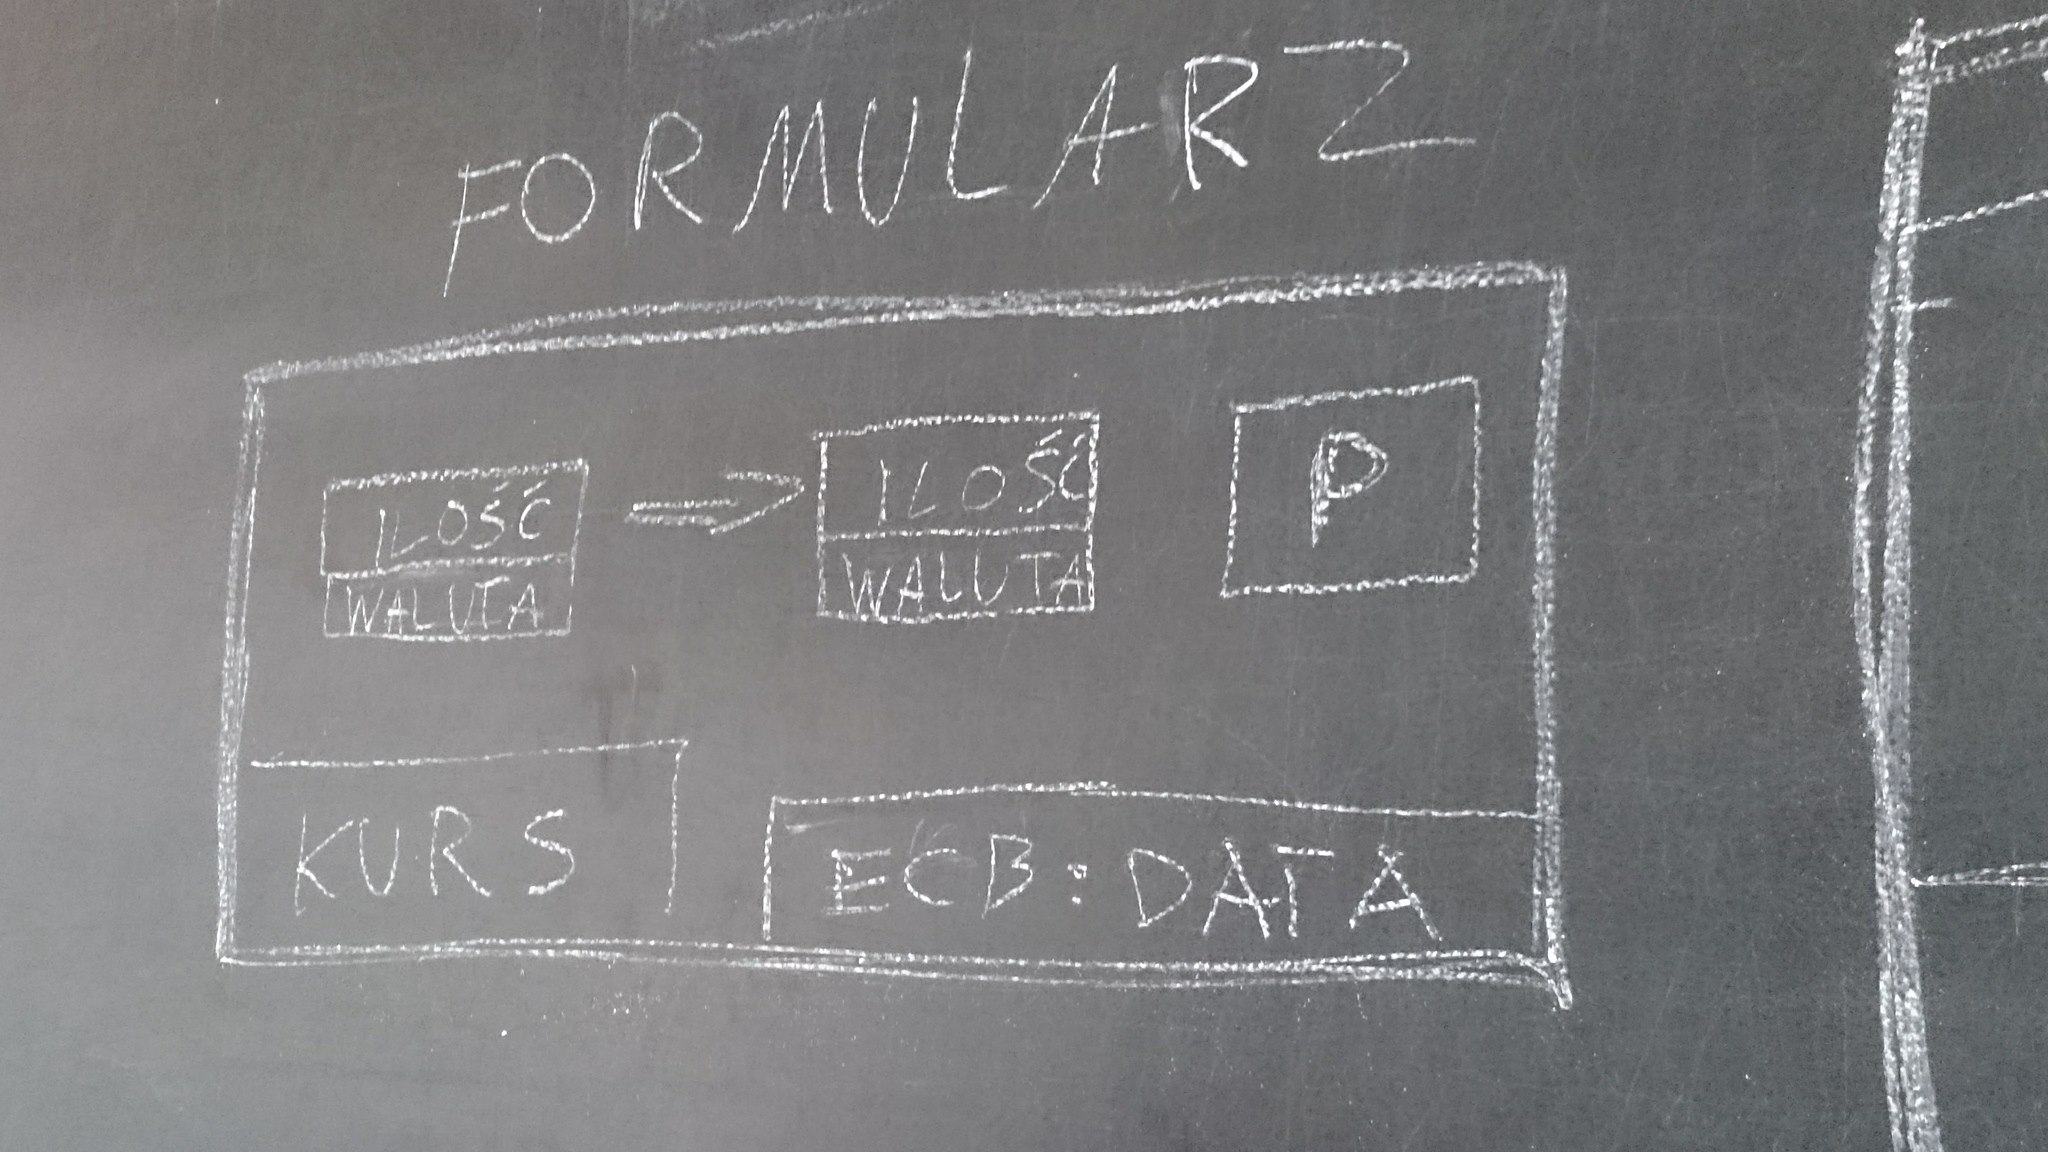 FORMULARZ
ILOŚĆ
WALUTA
ILOŚĆ
WALUTA
P
KURS
ECB: DATA